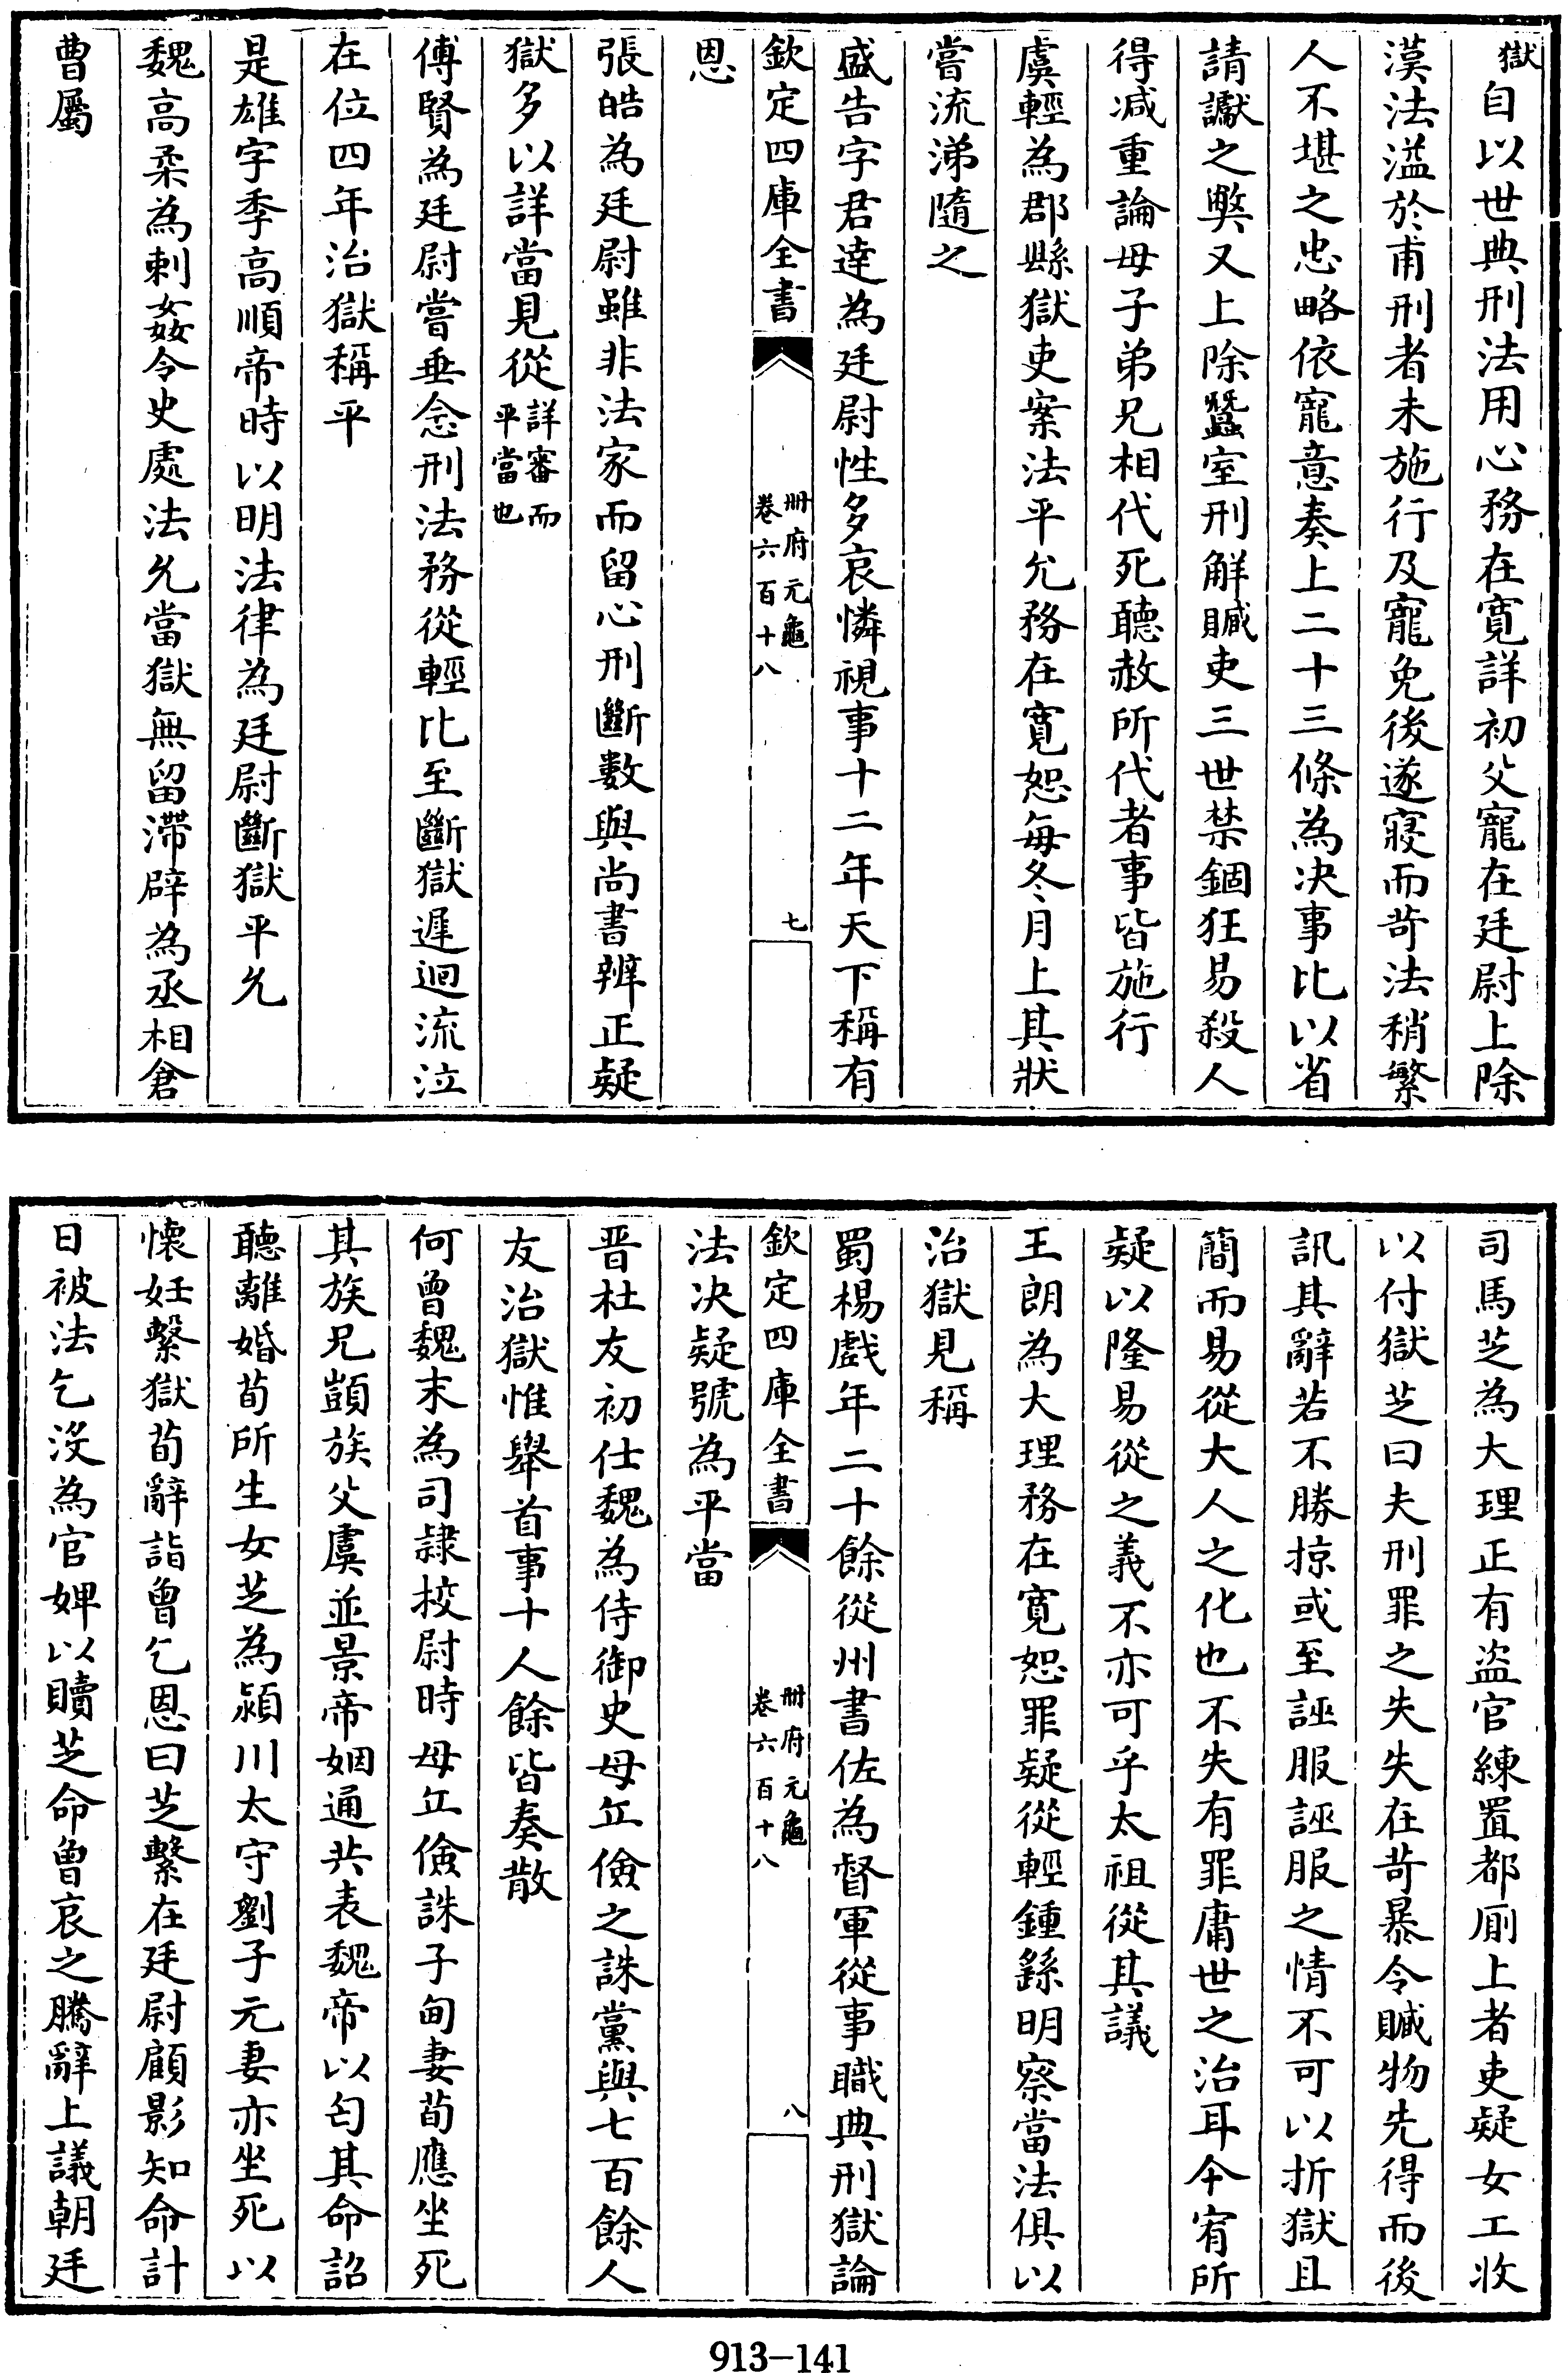 獄自以世典刑法用心務在寛詳初父寵在廷尉上除
漢法溢於甫刑者未施行及寵免後遂寢而苛法稍繁
人不堪之忠略依寵意奏上二十三條為决事比以省
請讞之獘又上除蠶室刑解贓吏三世禁錮狂易殺人
得减重論母子弟兄相代死聽赦所代者事皆施行
虞輕為郡縣獄吏案法平允務在寛恕每冬月上其狀
嘗流涕隨之
盛告字君逹為廷尉性多哀憐視事十二年天下稱有
欽定四庫全書 冊府元龜 卷六百十八 七
恩
張皓為廷尉雖非法家而留心刑斷數與尚書辨正疑
獄多以詳當見從詳審而平當也
傅賢為廷尉嘗垂念刑法務從輕比至斷獄遲迴流泣
在位四年治獄稱平
是雄字季高順帝時以明法律為廷尉斷獄平允
魏高柔為刺姦令史處法允當獄無留滯辟為丞相倉
曹屬
司馬芝為大理正有盗官練置都厠上者吏疑女工收
以付獄芝曰夫刑罪之失失在苛暴今贓物先得而後
訊其辭若不勝掠或至誣服誣服之情不可以折獄且
簡而易從大人之化也不失有罪庸世之治耳今宥所
疑以隆易從之義不亦可乎太祖從其議
王朗為大理務在寛恕罪疑從輕鍾繇明察當法俱以
治獄見稱
蜀楊戲年二十餘從州書佐為督軍從事職典刑獄論
欽定四庫全書 冊府元龜 卷六百十八 八
法决疑號為平當
晉杜友初仕魏為侍御史母丘儉之誅黨與七百餘人
友治獄惟舉首事十人餘皆奏散
何曾魏末為司隷校尉時母丘儉誅子甸妻荀應坐死
其族兄顗族父虞並景帝姻通共表魏帝以匄其命詔
聽離婚荀所生女芝為潁川太守劉子元妻亦坐死以
懷妊繫獄荀辭詣曾乞恩曰芝繫在廷尉顧影知命計
日被法乞沒為官婢以贖芝命曾哀之騰辭上議朝廷
913-141